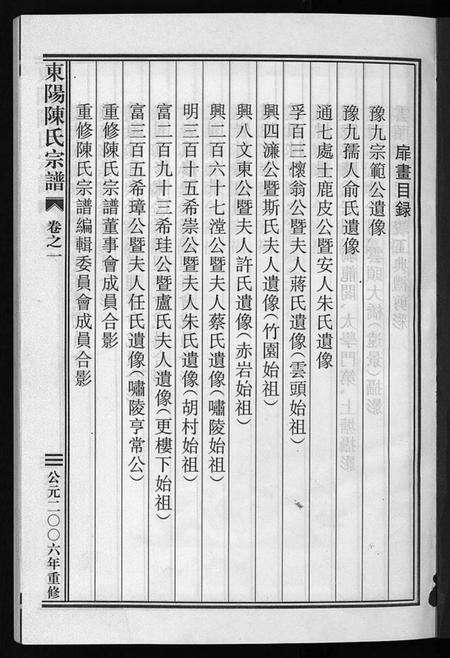 扉畫目録
豫九宗範公遺像
豫九孺人俞氏遺像
通七處士鹿皮公暨安人朱氏遺像
孚百三懷翁公暨夫人蔣氏遺像(雲頭始祖)
興四濂公暨斯氏夫人遺像(竹園始祖)
興八文東公暨夫人許氏遺像(赤岩始祖)
興二百六十七瀅公暨夫人蔡氏遺像(嘯陵始祖)
明三百十五希崇公暨夫人朱氏遺像(胡村始祖)
富二百九十三希珪公暨盧氏夫人遺像(更樓下始祖)
富三百五希璋公暨夫人任氏遺像(嘯陵亨常公)
重修陳氏宗譜董事會成員合影
重修陳氏宗譜編輯委員會成員合影
東陽陳氏宗譜
卷之一
公元二〇〇六年重修